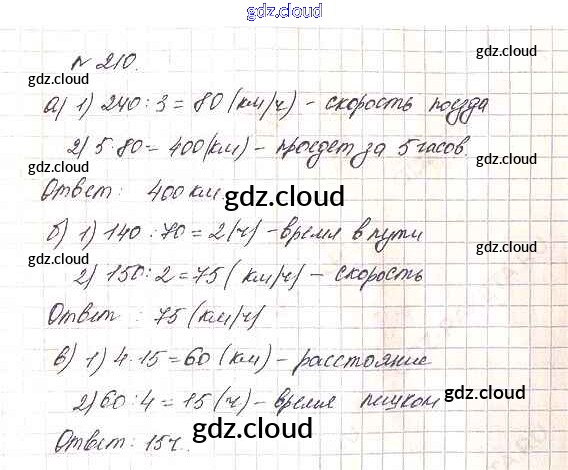 gdz.cloud
gdz.cloud
№ 210.
gdz.cloud
gdz.cloud
а) 1) 240 : 3 = 80 (км/ч) - скорость поезда
2) 5 · 80 = 400 (км) - проедет за 5 часов.
gdz.cloud
gdz.cloud
Ответ: 400 км.
gdz.cloud
б) 1) 140 : 70 = 2 (ч) - время в пути
gdz.cloud
gdz.cloud
2) 150 : 2 = 75 (км/ч) - скорость
Ответ: 75 (км/ч)
gdz.cloud
в) 1) 4 · 15 = 60 (км) - расстояние
2) 60 : 4 = 15 (ч) - время пешком
gdz.cloud
gdz.cloud
Ответ: 15 ч.
gdz.cloud